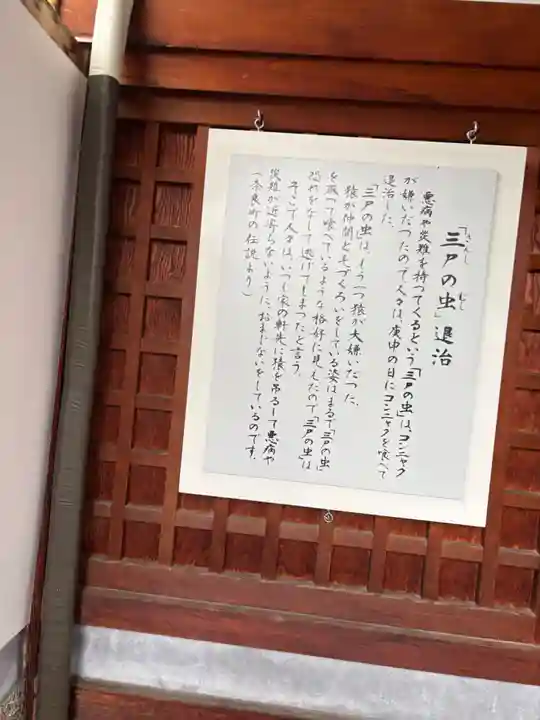 「三尸の虫」退治
さんし むし
悪病や災難を持ってくるという「三尸の虫」は、コンニャク
が嫌いだったので人々は、庚申の日にコンニャクを喰べて
退治した。
「三尸の虫は、もう一つ猿が大嫌いだった。
猿が仲間と毛づくろいをしている姿はまるで「三尸の虫」
を取って喰べているような格好に見えたので「三尸の虫」は
恐れをなして逃げてしまったと言う。
そこで人々は、いつも家の軒先に猿を吊るして悪病や
災難が近寄らないように、おまじないをしているのです。
（奈良町の伝説より）